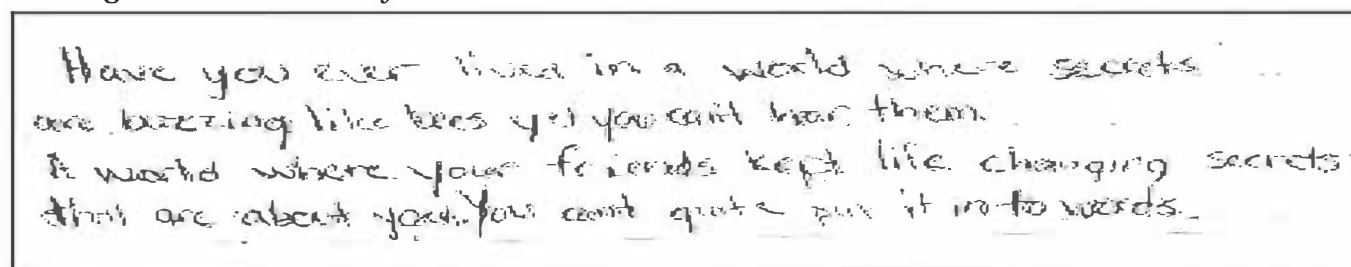 Have you ever lived in a world where secrets
are buzzing like bees yet you can't hear them.
A world where your friends kept life changing secrets
that are about you. You cant quite put it into words.